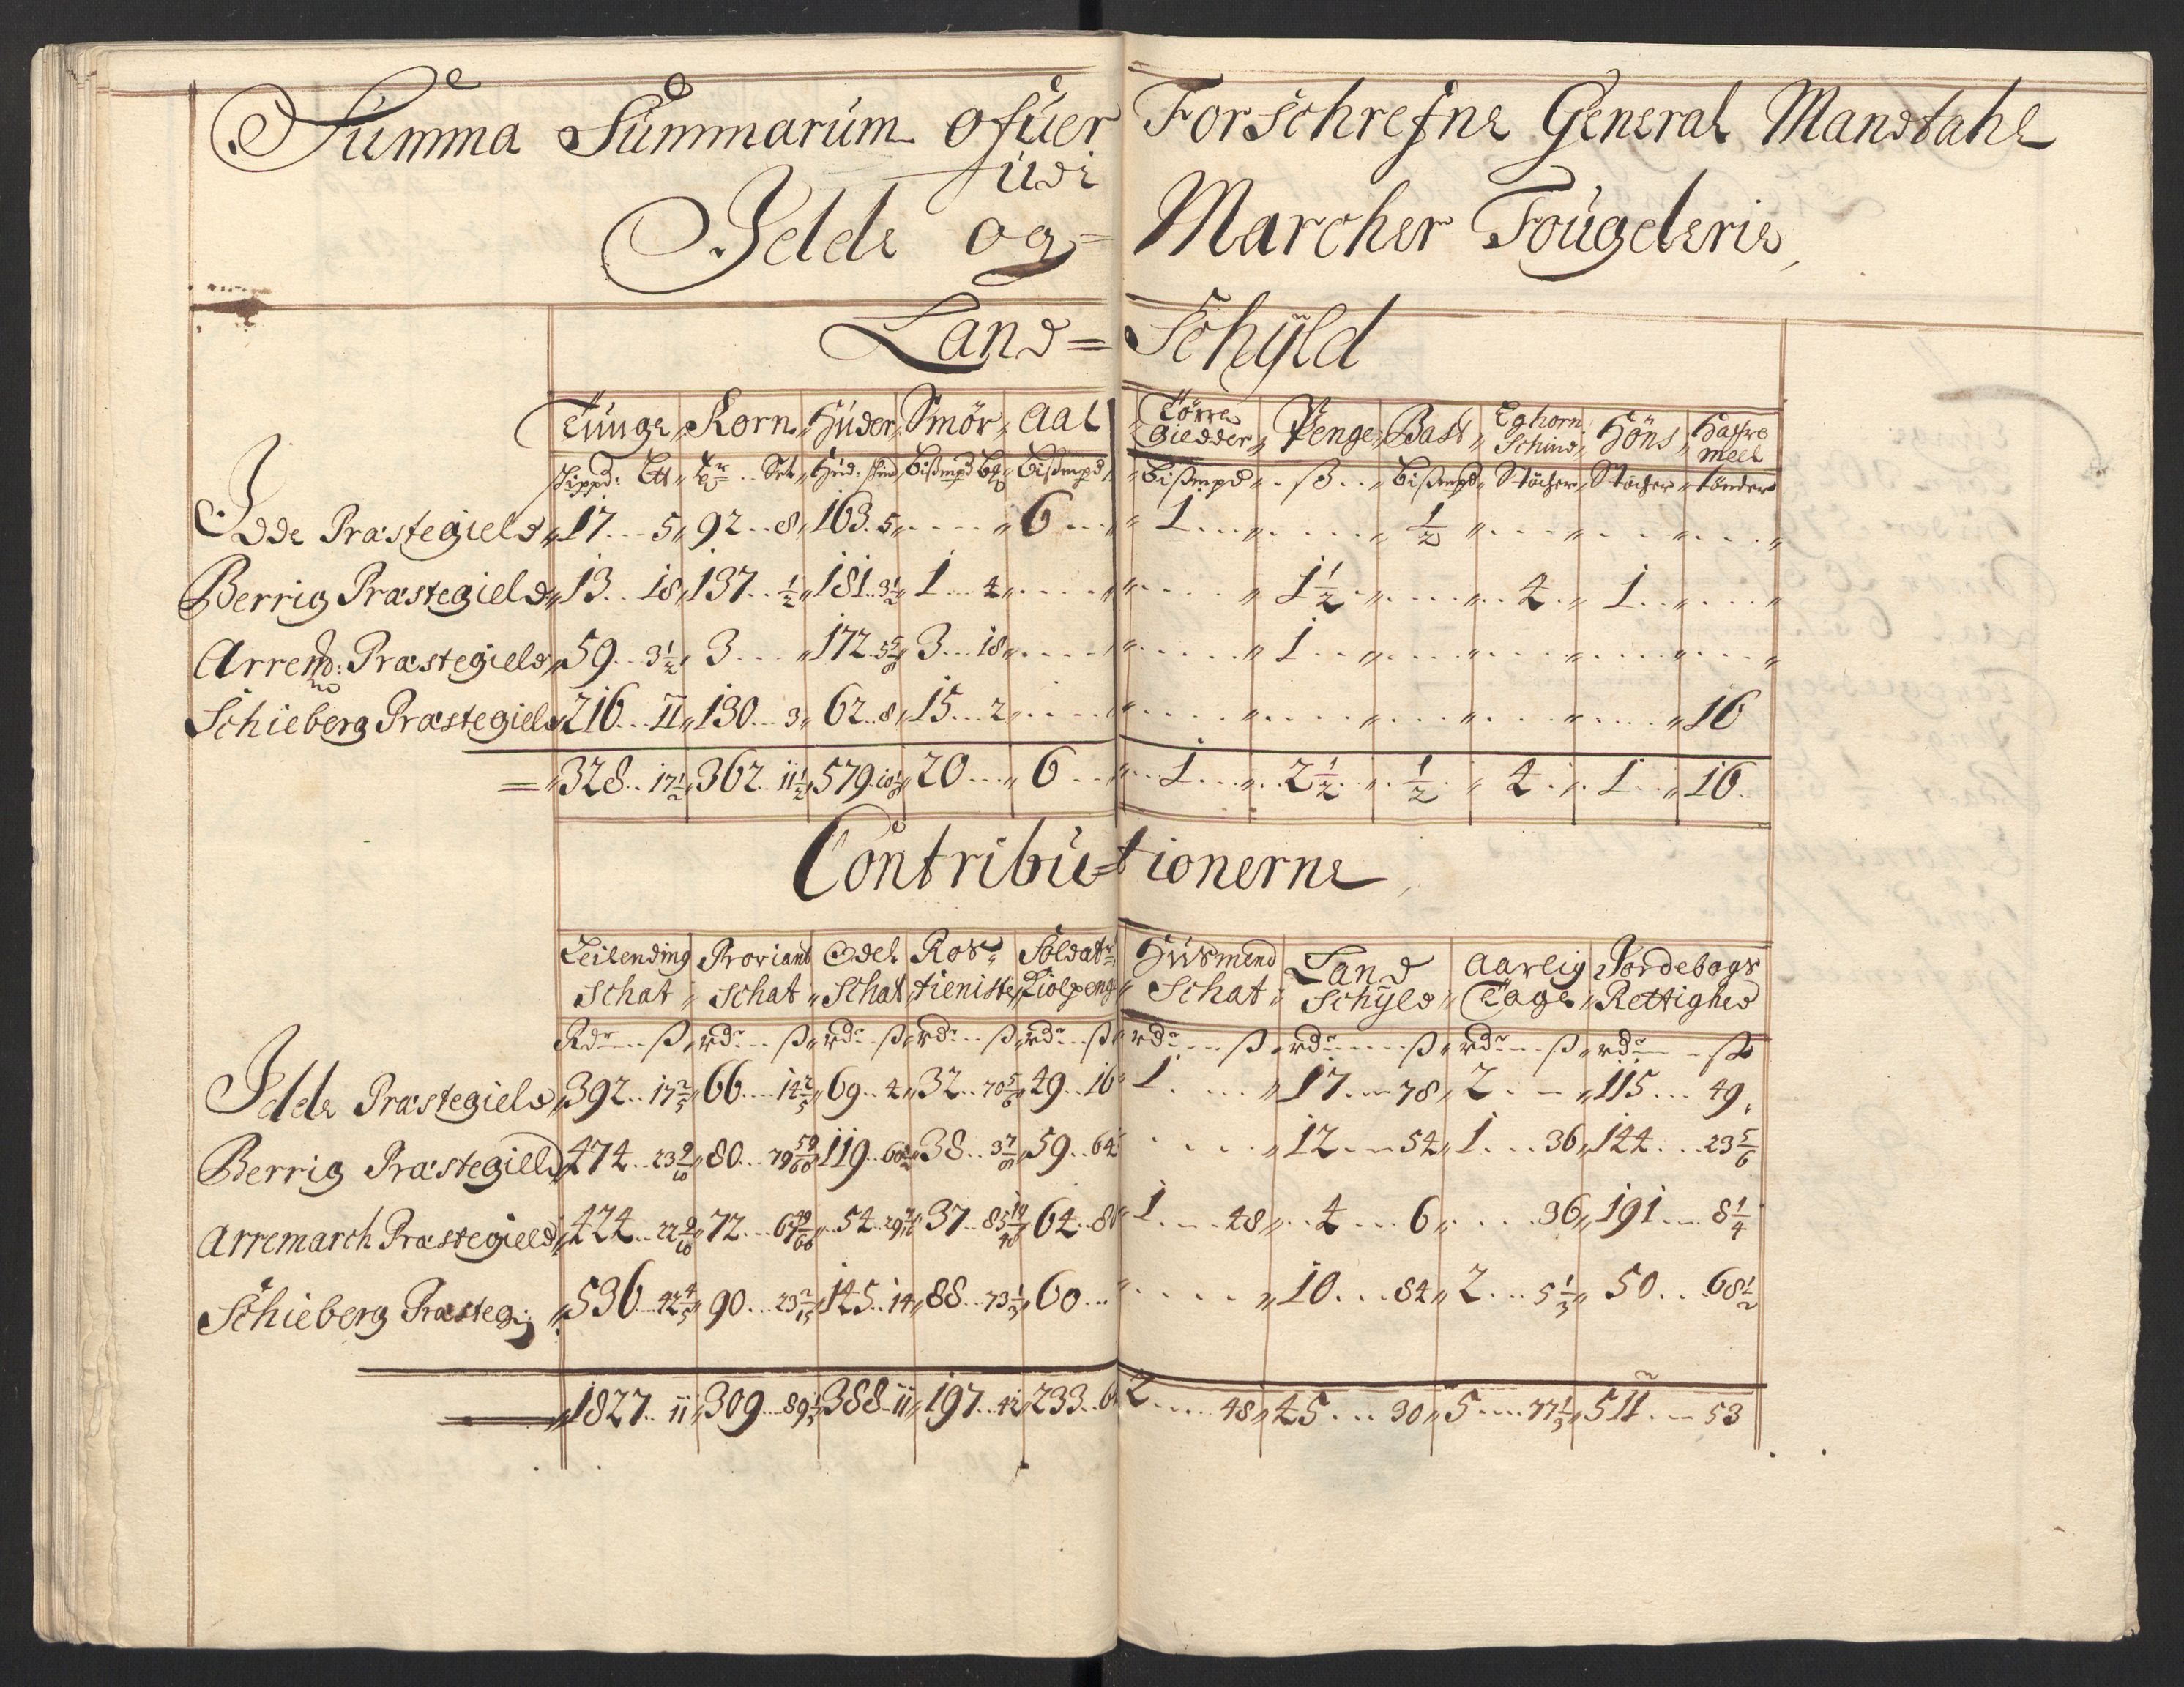 Summa Summarum ofuer Forschrefne General Mandtahl
udi
Idde og= Marcher Fougderie,
Land= Schyld
Tunge Korn Huder Smör Aal Törre Giedder Penge Bast Eghorn Schind Höns Haffre meel
Schippd: Ltt Tr Set Hud. skin Bißmpd Bißmpd Bißmpd ß Bißmpd Stöcher Stöcher tönder
Idde Præstegield 17 5 92 8 163 5 6 1 1/2
Berrig Præstegield 13 18 137 1/2 181 3 1/2 1 4 1 1/2 4 1
Arrem: Præstegield 59 3 1/2 3 172 5 5/8 3 18 1
Schieberg Præstegield 216 11 130 3 62 8 15 2 16
328 17 1/2 362 11 1/2 579 10 1/8 20 6 1 2 1/2 1/2 4 1 16
Contribu=tionerne
Leilending Schat Proviant Schat Odel Schat Ros= tieniste Soldatr= Husmend Schat Land Schyld Aarlig Tage Jordebogs Rettighed
Rdr ß rdr ß rdr ß rdr ß rdr ß rdr ß rdr ß rdr ß rdr ß
Idde Præstegield 392 17 2/5 66 14 2/5 69 4 32 70 5/6 49 16 1 17 78 2 115 49
Berrig Præstegield 474 23 9/10 80 79 59/60 119 60 38 3 7/8 59 64 12 54 1 36 144 23 5/6
Arremarch Præstegield 424 22 9/10 72 54 37 64 1 48 4 6 36 191 8 1/4
Schieberg Præsteg: 536 42 4/5 90 23 2/15 145 14 88 73 1/3 60 10 84 2 5 1/3 50 68 1/2
1827 11 309 89 1/3 388 11 197 42 233 2 48 45 30 5 77 1/3 511 53